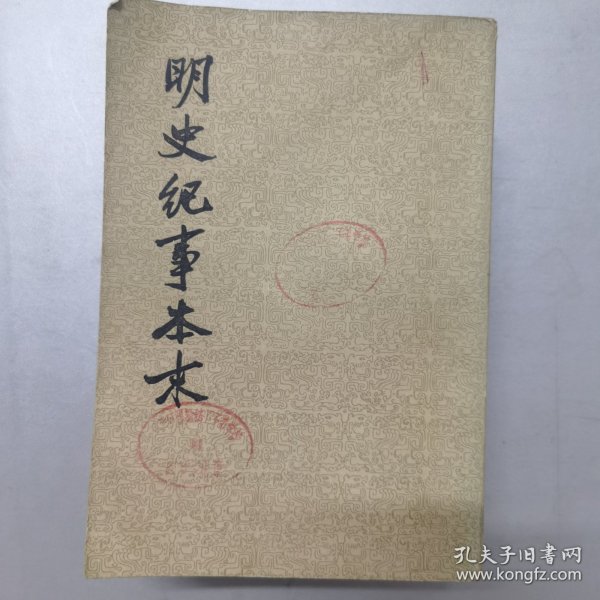 明史纪事本末
孔夫子旧书网
www.kongfz.com